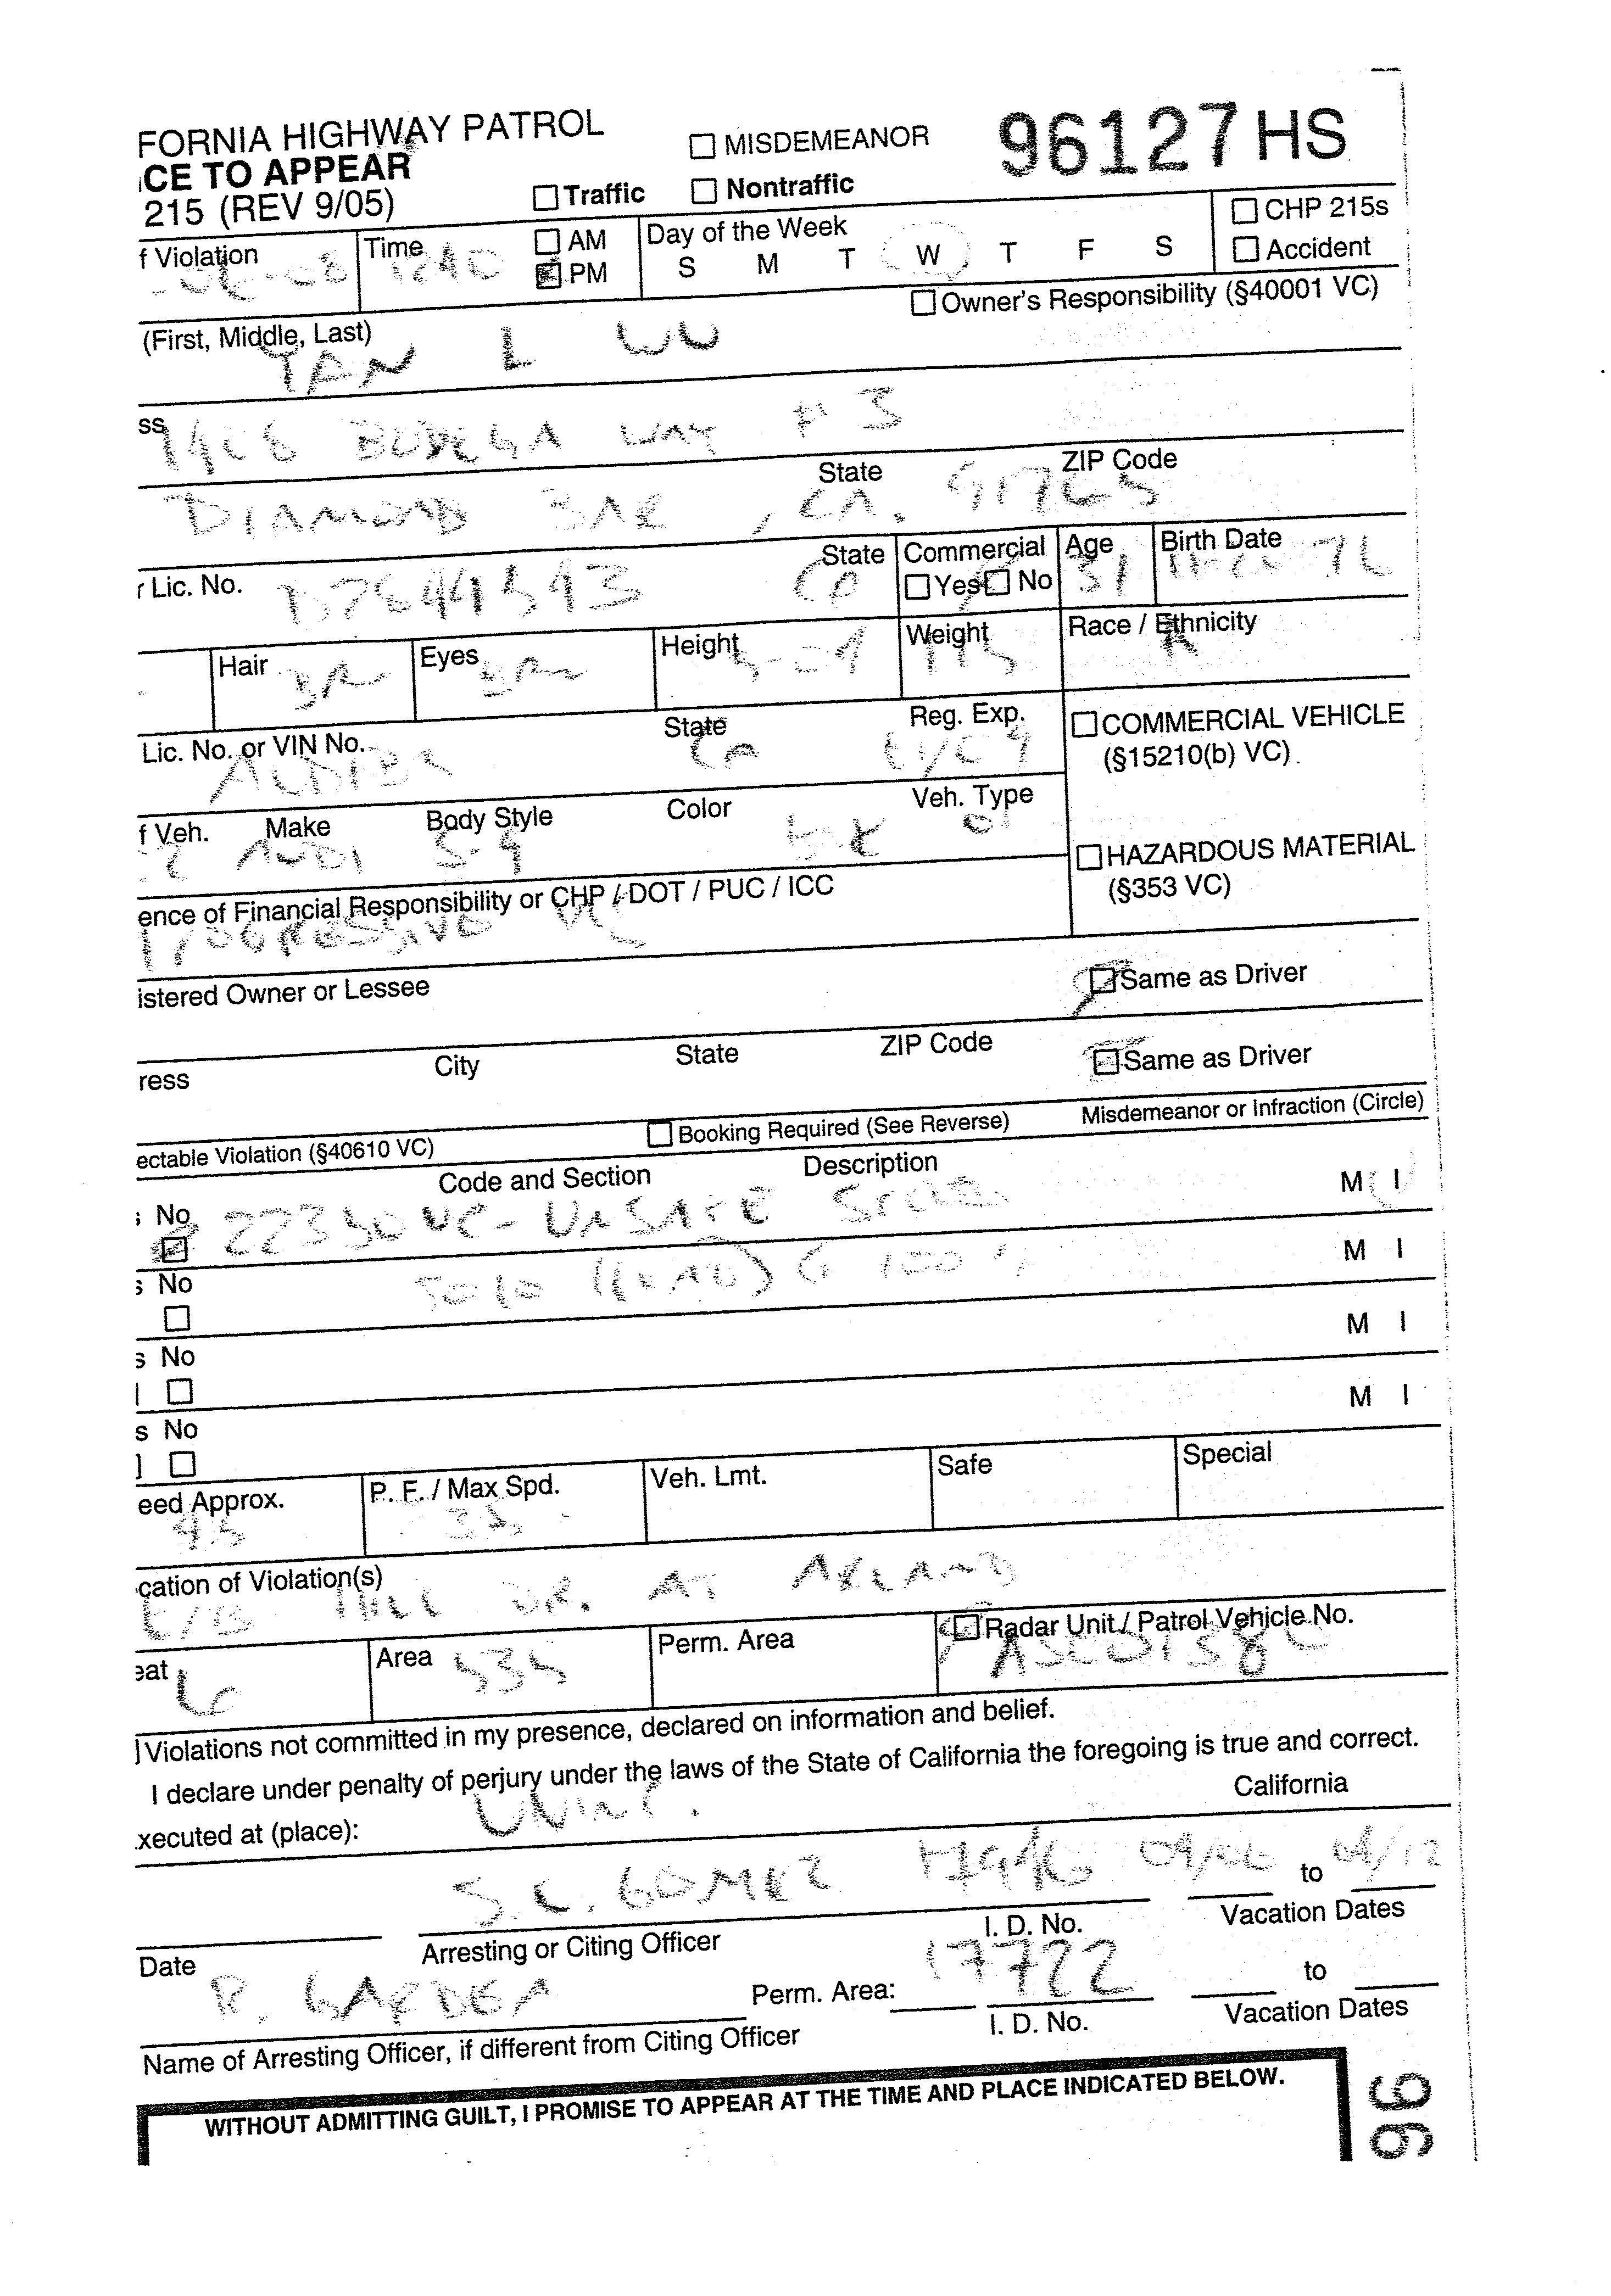 FORNIA HIGHWAY PATROL
CE TO APPEAR
215 (REV 9/05)
MISDEMEANOR
Traffic Nontraffic
96127HS
f Violation Time 1240 AM PM Day of the Week S M T W T F S
CHP 215s
Accident
Owner's Responsibility (§40001 VC)
(First, Middle, Last)
YAN L WU
ss
BODEGA WAY # 3
State ZIP Code
DIAMOND BAR, CA. 91765
r Lic. No. State CA Commercial Yes No Age 31 Birth Date
Hair BRN Eyes BRN Height Weight 115 Race / Ethnicity
Lic. No. or VIN No. State CA Reg. Exp.
COMMERCIAL VEHICLE
(§15210(b) VC).
f Veh. Make AUDI Body Style Color Veh. Type
HAZARDOUS MATERIAL
(§353 VC)
ence of Financial Responsibility or CHP / DOT / PUC / ICC
PROGRESSIVE
istered Owner or Lessee Same as Driver
ress City State ZIP Code Same as Driver
ectable Violation (§40610 VC) Booking Required (See Reverse) Misdemeanor or Infraction (Circle)
Code and Section Description
No 22350 VC - UNSAFE SPEED M I
s No M I
s No M I
s No M I
eed Approx. 45 P. F. / Max Spd. Veh. Lmt. Safe Special
cation of Violation(s)
E/B HILL DR. AT
eat Area 535 Perm. Area Radar Unit / Patrol Vehicle No.
Violations not committed in my presence, declared on information and belief.
I declare under penalty of perjury under the laws of the State of California the foregoing is true and correct.
xecuted at (place): California
S. C. GOMEZ 09/06 to 09/12
Date Arresting or Citing Officer I. D. No. Vacation Dates
R. GARDEA Perm. Area: 17722 to
Name of Arresting Officer, if different from Citing Officer I. D. No. Vacation Dates
WITHOUT ADMITTING GUILT, I PROMISE TO APPEAR AT THE TIME AND PLACE INDICATED BELOW.
96